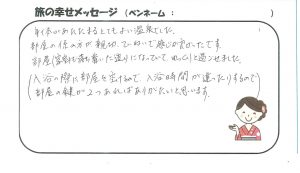 旅の幸せメッセージ (ペンネーム： )
身体があたたまるとてもよい温泉でした。
部屋の係の方が親切でていねいで感じが良かったです。
部屋(客室)も落ち着いた造りになっていて、ゆっくりと過ごせました。
(入浴の際に部屋を空けるので、入浴時間が違ったりするので
部屋の鍵が2つあればありがたいと思います。)